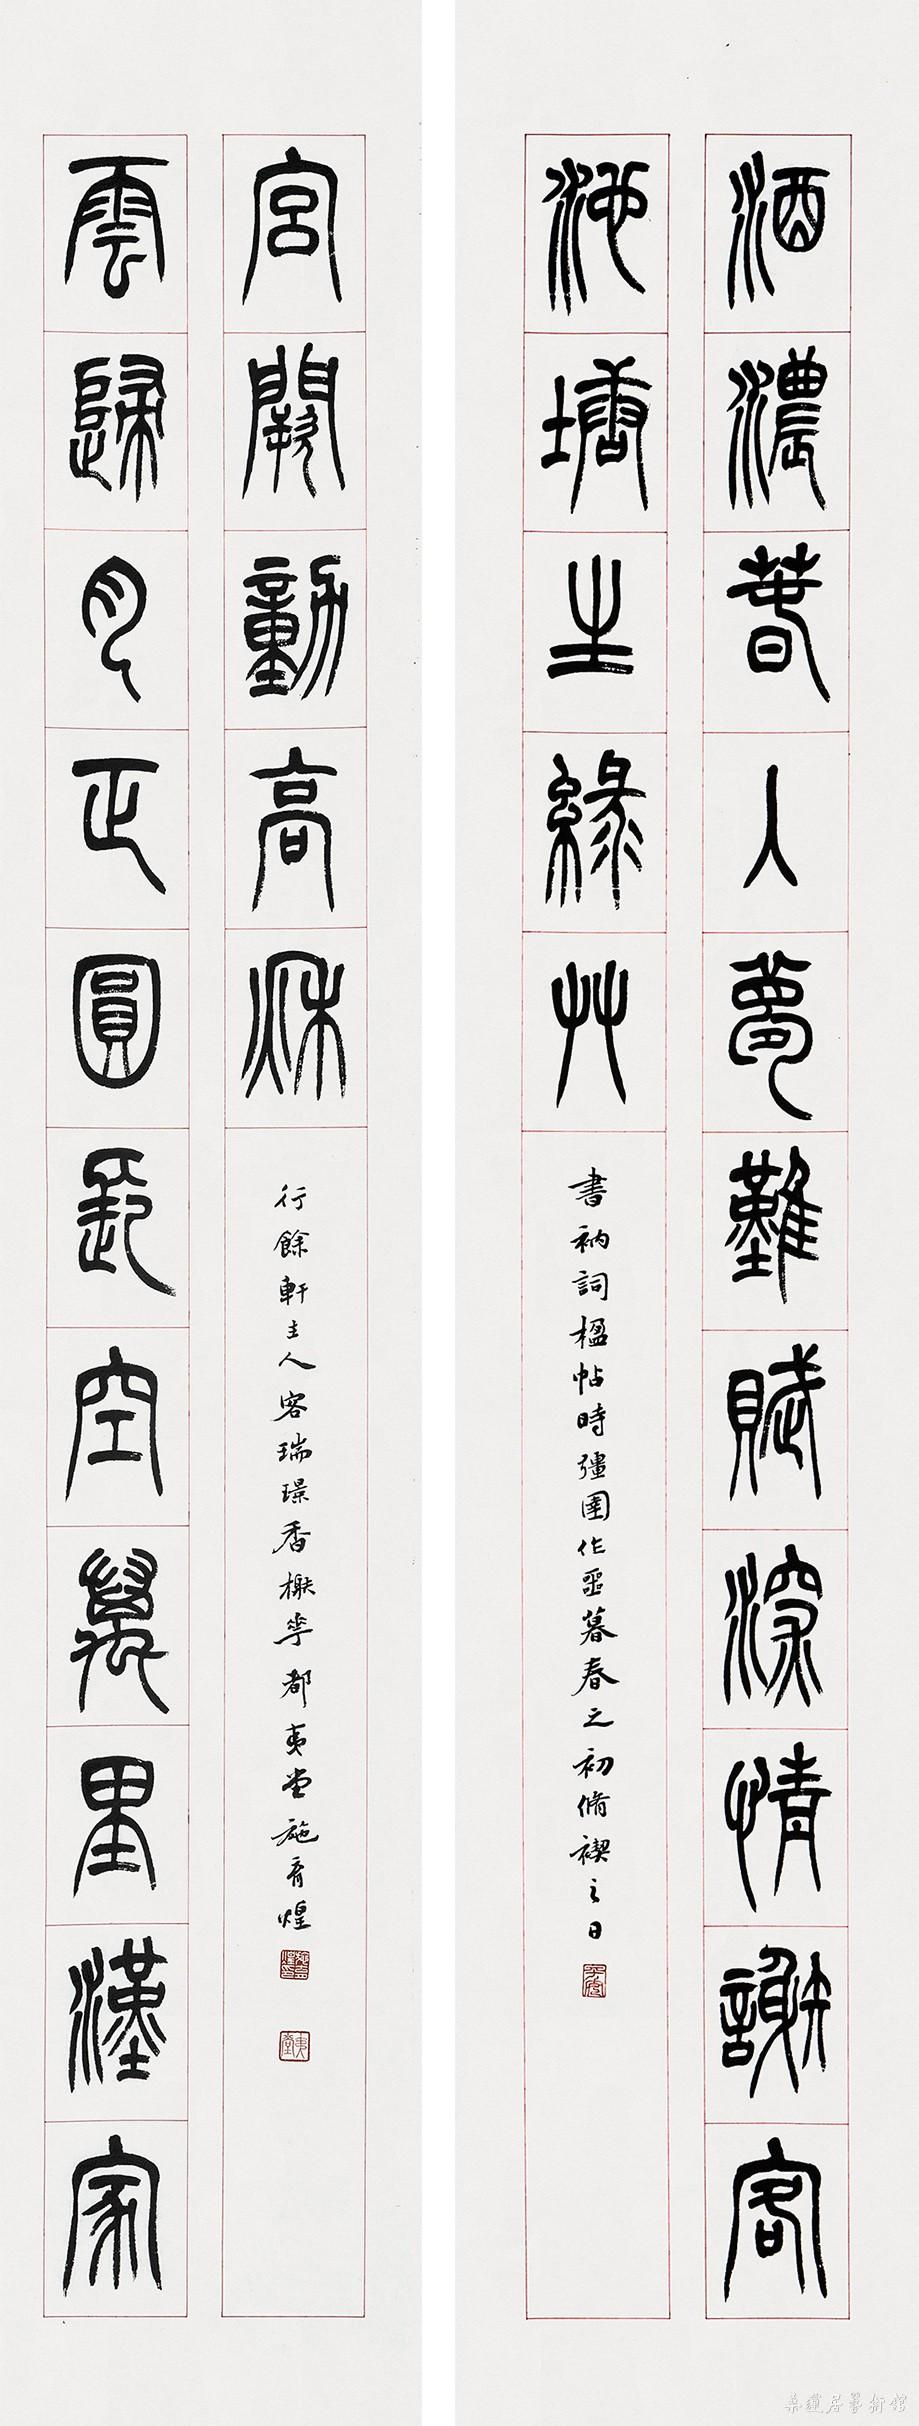 酒濃春入夢難賦深情謝客
池塘生綠艸
書衲詞楹帖時彊圉作噩暮春之初脩禊之日
雲歸月正圓雁空萬里漢家
宮闕動高秋
行餘軒主人客瑞璟香榭華都夷堂施育煌
夷堂
居藝術館